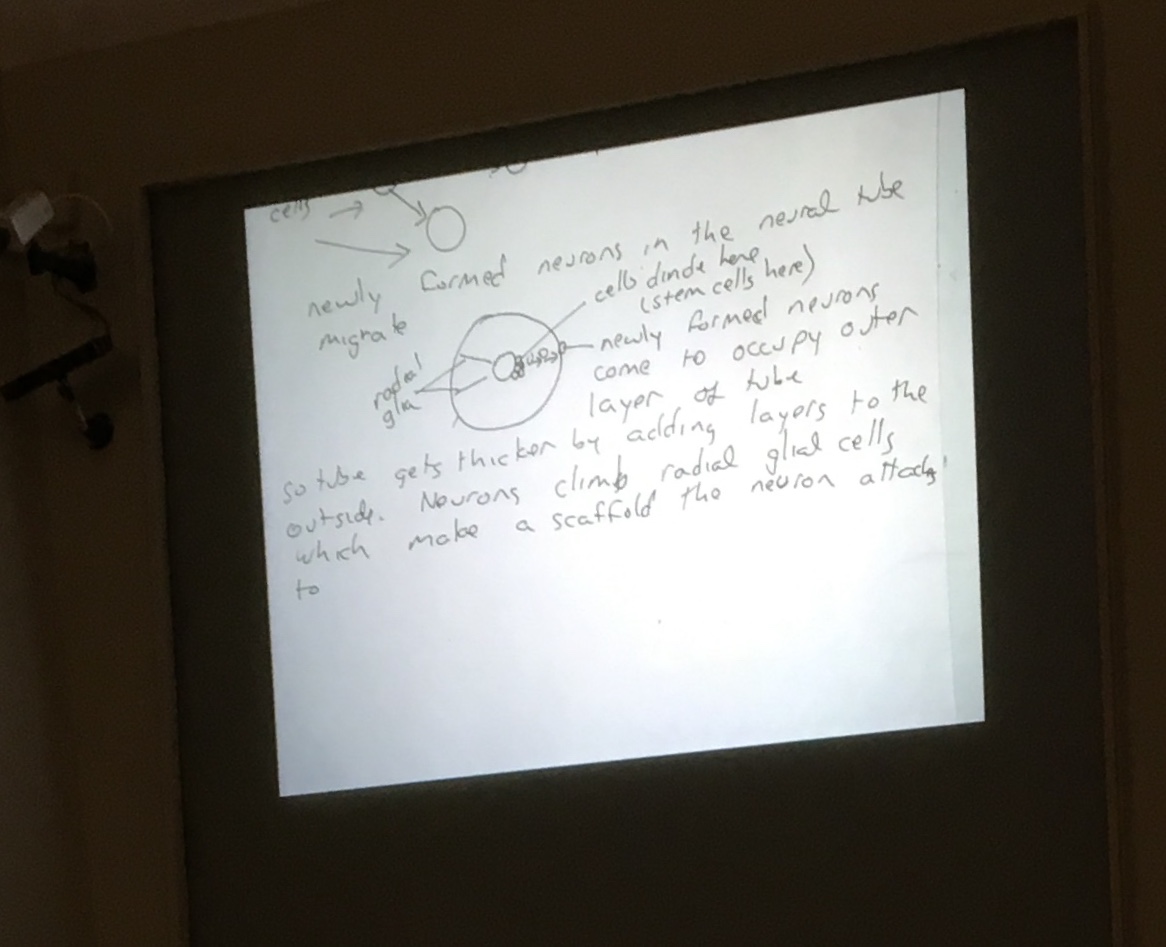 cells
newly formed neurons in the neural tube
migrate
cells divide here
(stem cells here)
radial
glia
newly formed neurons
come to occupy outer
layer of tube
so tube gets thicker by adding layers to the
outside. Neurons climb radial glial cells
which make a scaffold the neuron attachs
to